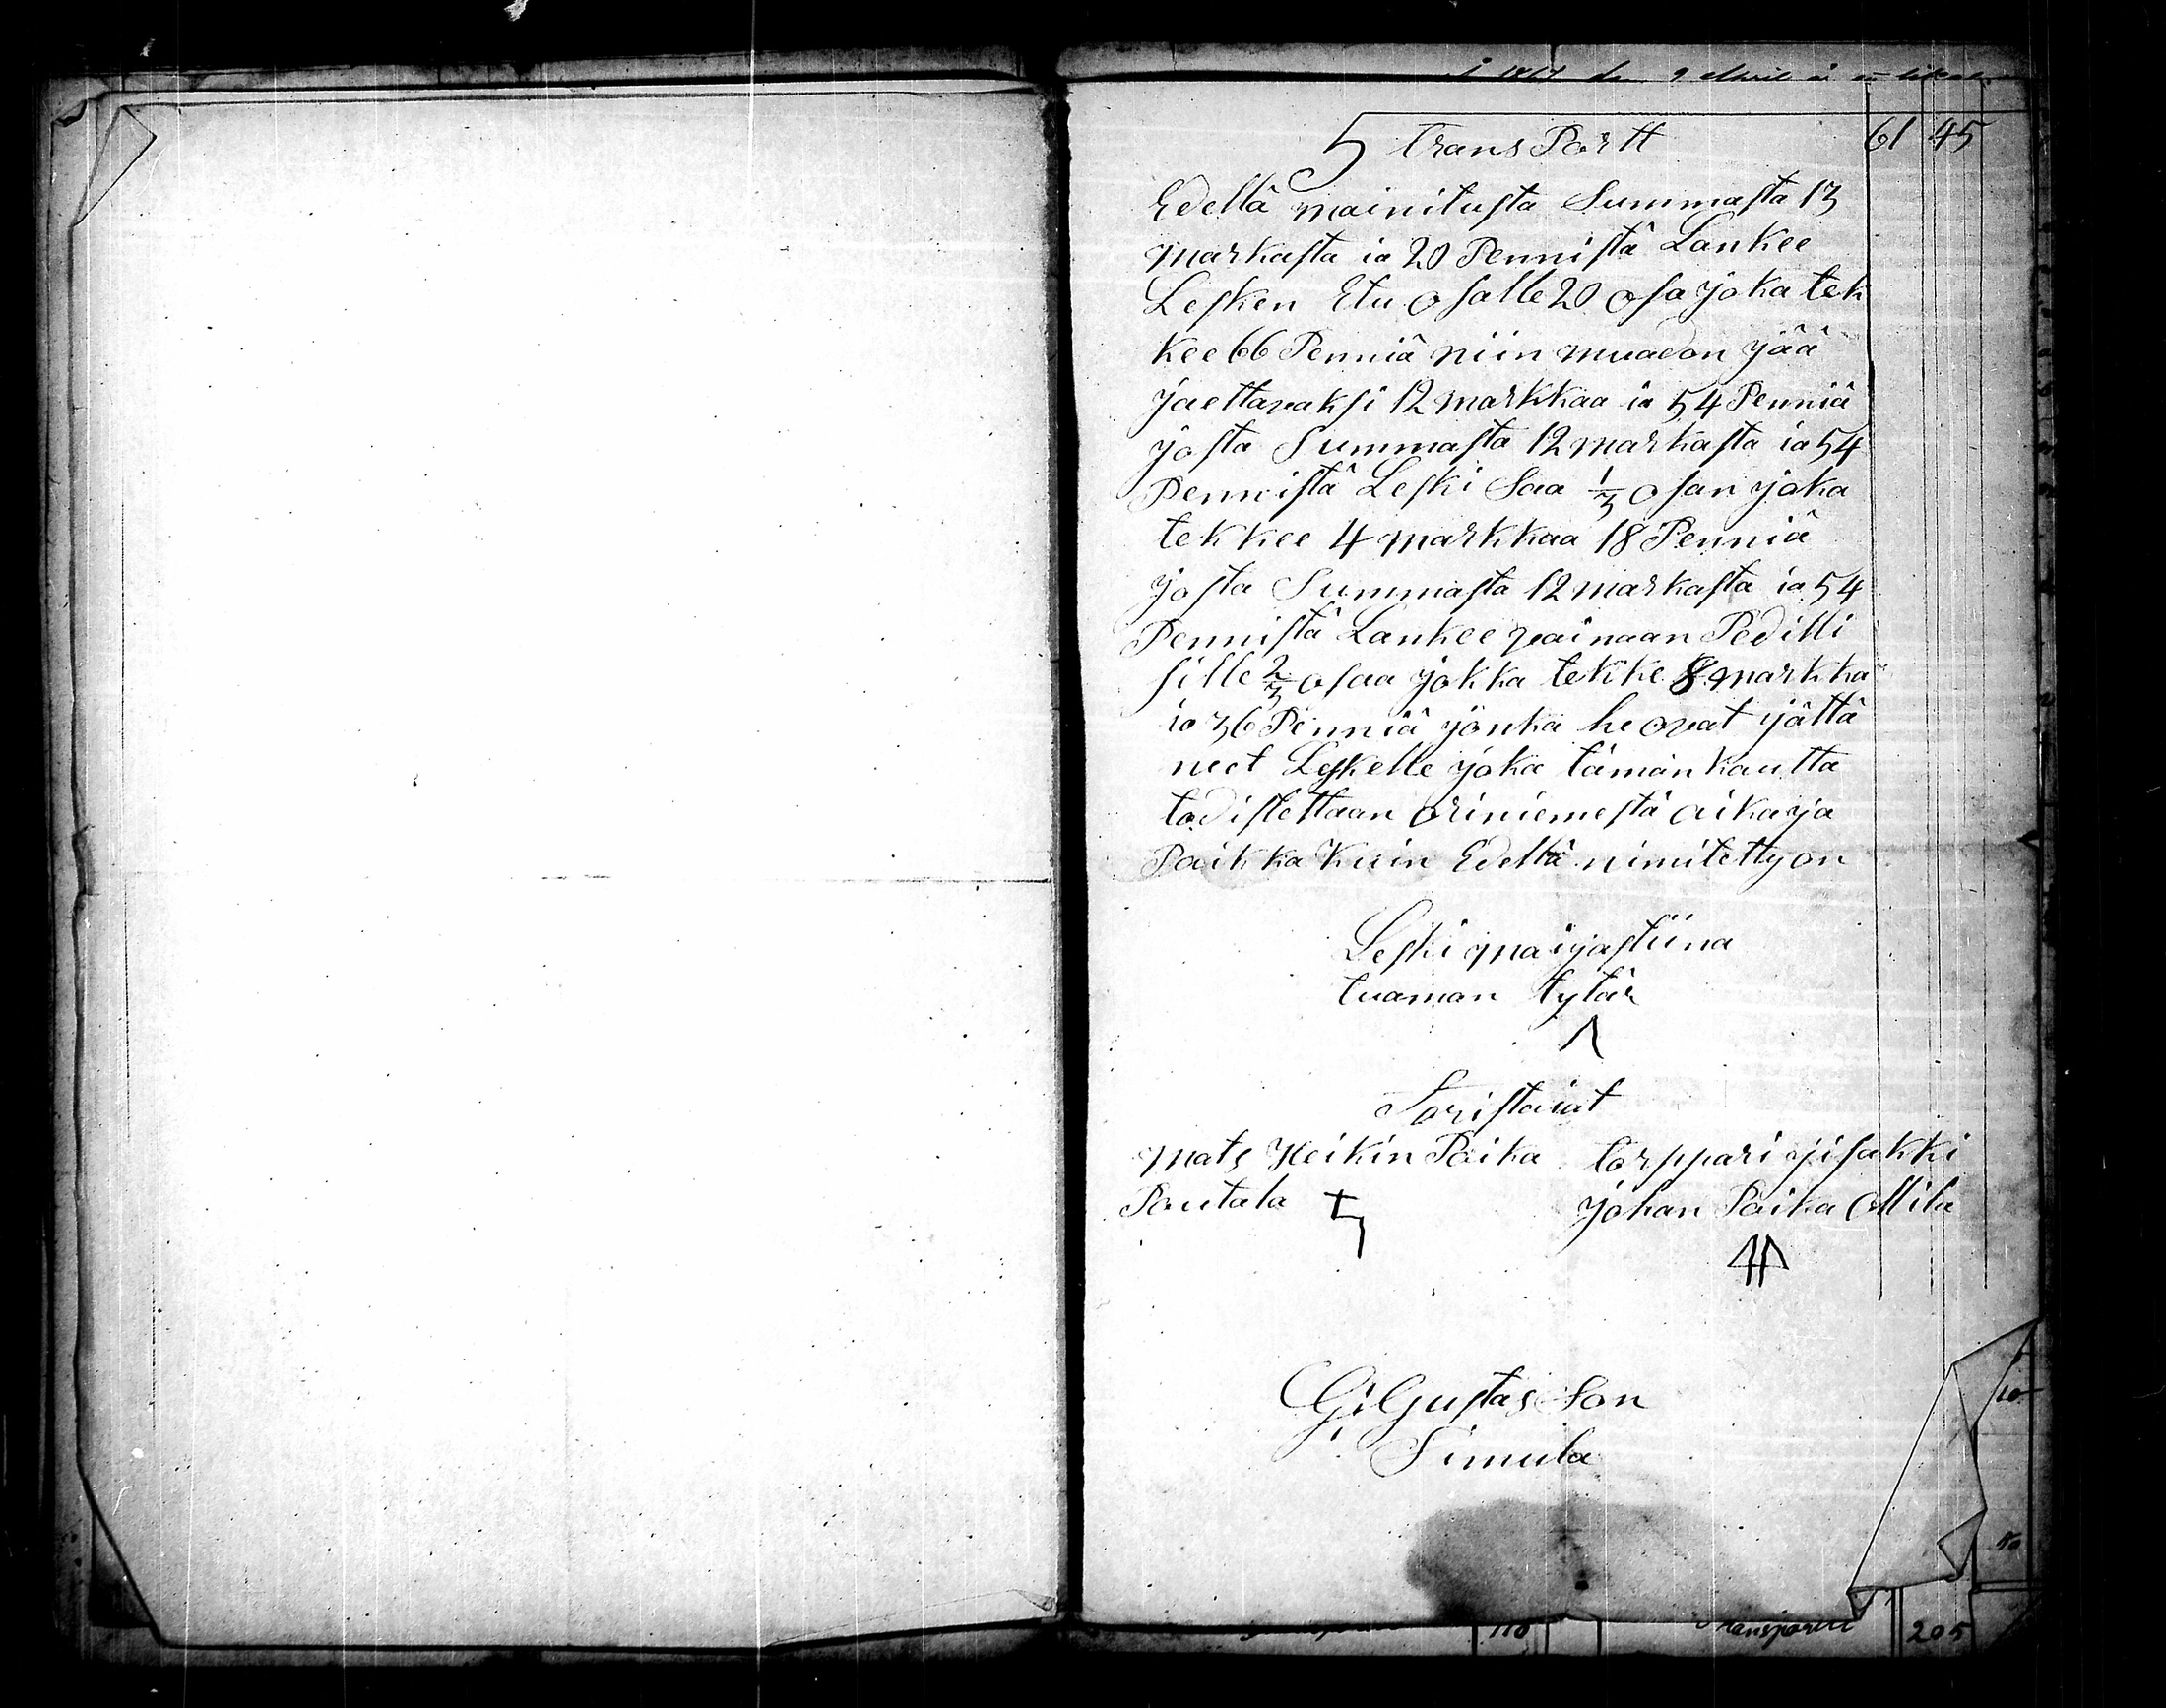 5 transPortt 61 45
Edellä mainitusta Summasta 13
markasta ia 20 Pennistä Lankee
Lesken Etu osalle 20 osa joka tek
kee 66 Penniä niin muadon jää
jaettavaksi 12 markkaa ia 54 Penniä
josta Summasta 12 markasta ia 54
Pennistä Leski Saa 1/3 osan joka
tekkee 4 markkaa 18 Penniä
josta Summasta 12 markasta ia 54
Pennistä Lankee vainaan Pedilli
sille 2/3 osaa jokka tekke 8 markka
ia 36 Penniä jonka he ovat jättä
neet Leskelle joka tämän kautta
todistettaan oriniemestä aika ja
Paikka kuin Edellä nimitetty on
Leski maijastiina
tuaman tytär
Toristaiat
mats Heikin Poika torppari jisakki
Pautala johan Poika Ollila
G: Gustas Son
Simula
110 Transporteras 205